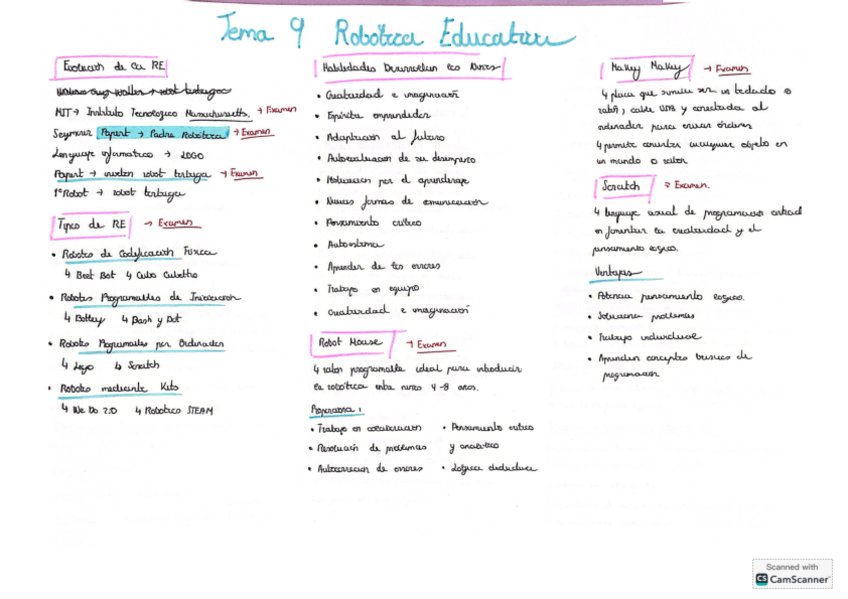 Tema 9 Robótica Educativa
Evolución de la RE
MIT → Instituto Tecnológico Massachusetts. → Examen
Seymour Papert → Padre Robótica → Examen
Lenguaje informático → LOGO
Papert → robot tortuga → Examen
1º Robot → robot tortuga
Tipos de RE → Examen
• Robots de Codificación Física
↳ Beet Bot ↳ Cubo Cubetto
• Robots Programables de Iniciación
↳ Botley ↳ Dash y Dot
• Robots Programables por Ordenador
↳ Lego ↳ Scratch
• Robots mediante Kits
↳ We Do 2.0 ↳ Robótica STEAM
Habilidades Desarrollan los Niños
• Creatividad e imaginación
• Espíritu emprendedor
• Adaptación al futuro
• Autoevaluación de su desempeño
• Motivación por el aprendizaje
• Nuevas formas de comunicación
• Pensamiento crítico
• Autoestima
• Aprender de los errores
• Trabajo en equipo
• Creatividad e imaginación
Robot Mouse → Examen
↳ ratón programable ideal para introducir
la robótica entre niños 4-8 años.
• Trabajo en colaboración
• Resolución de problemas
• Autocorrección de errores
• Pensamiento crítico
y analítico
• Lógica deductiva
Makey Makey → Examen
↳ placa que simula ser un teclado o
ratón, cable USB y conectada al
ordenador para enviar órdenes
↳ permite convertir cualquier objeto en
un mando o ratón
Scratch → Examen.
↳ lenguaje visual de programación
en fomentar la creatividad y el
pensamiento lógico.
Ventajas
• Potencia pensamiento lógico.
• Soluciona problemas
• Trabajo individual
• Aprenden conceptos básicos de
programación
Scanned with
CS CamScanner